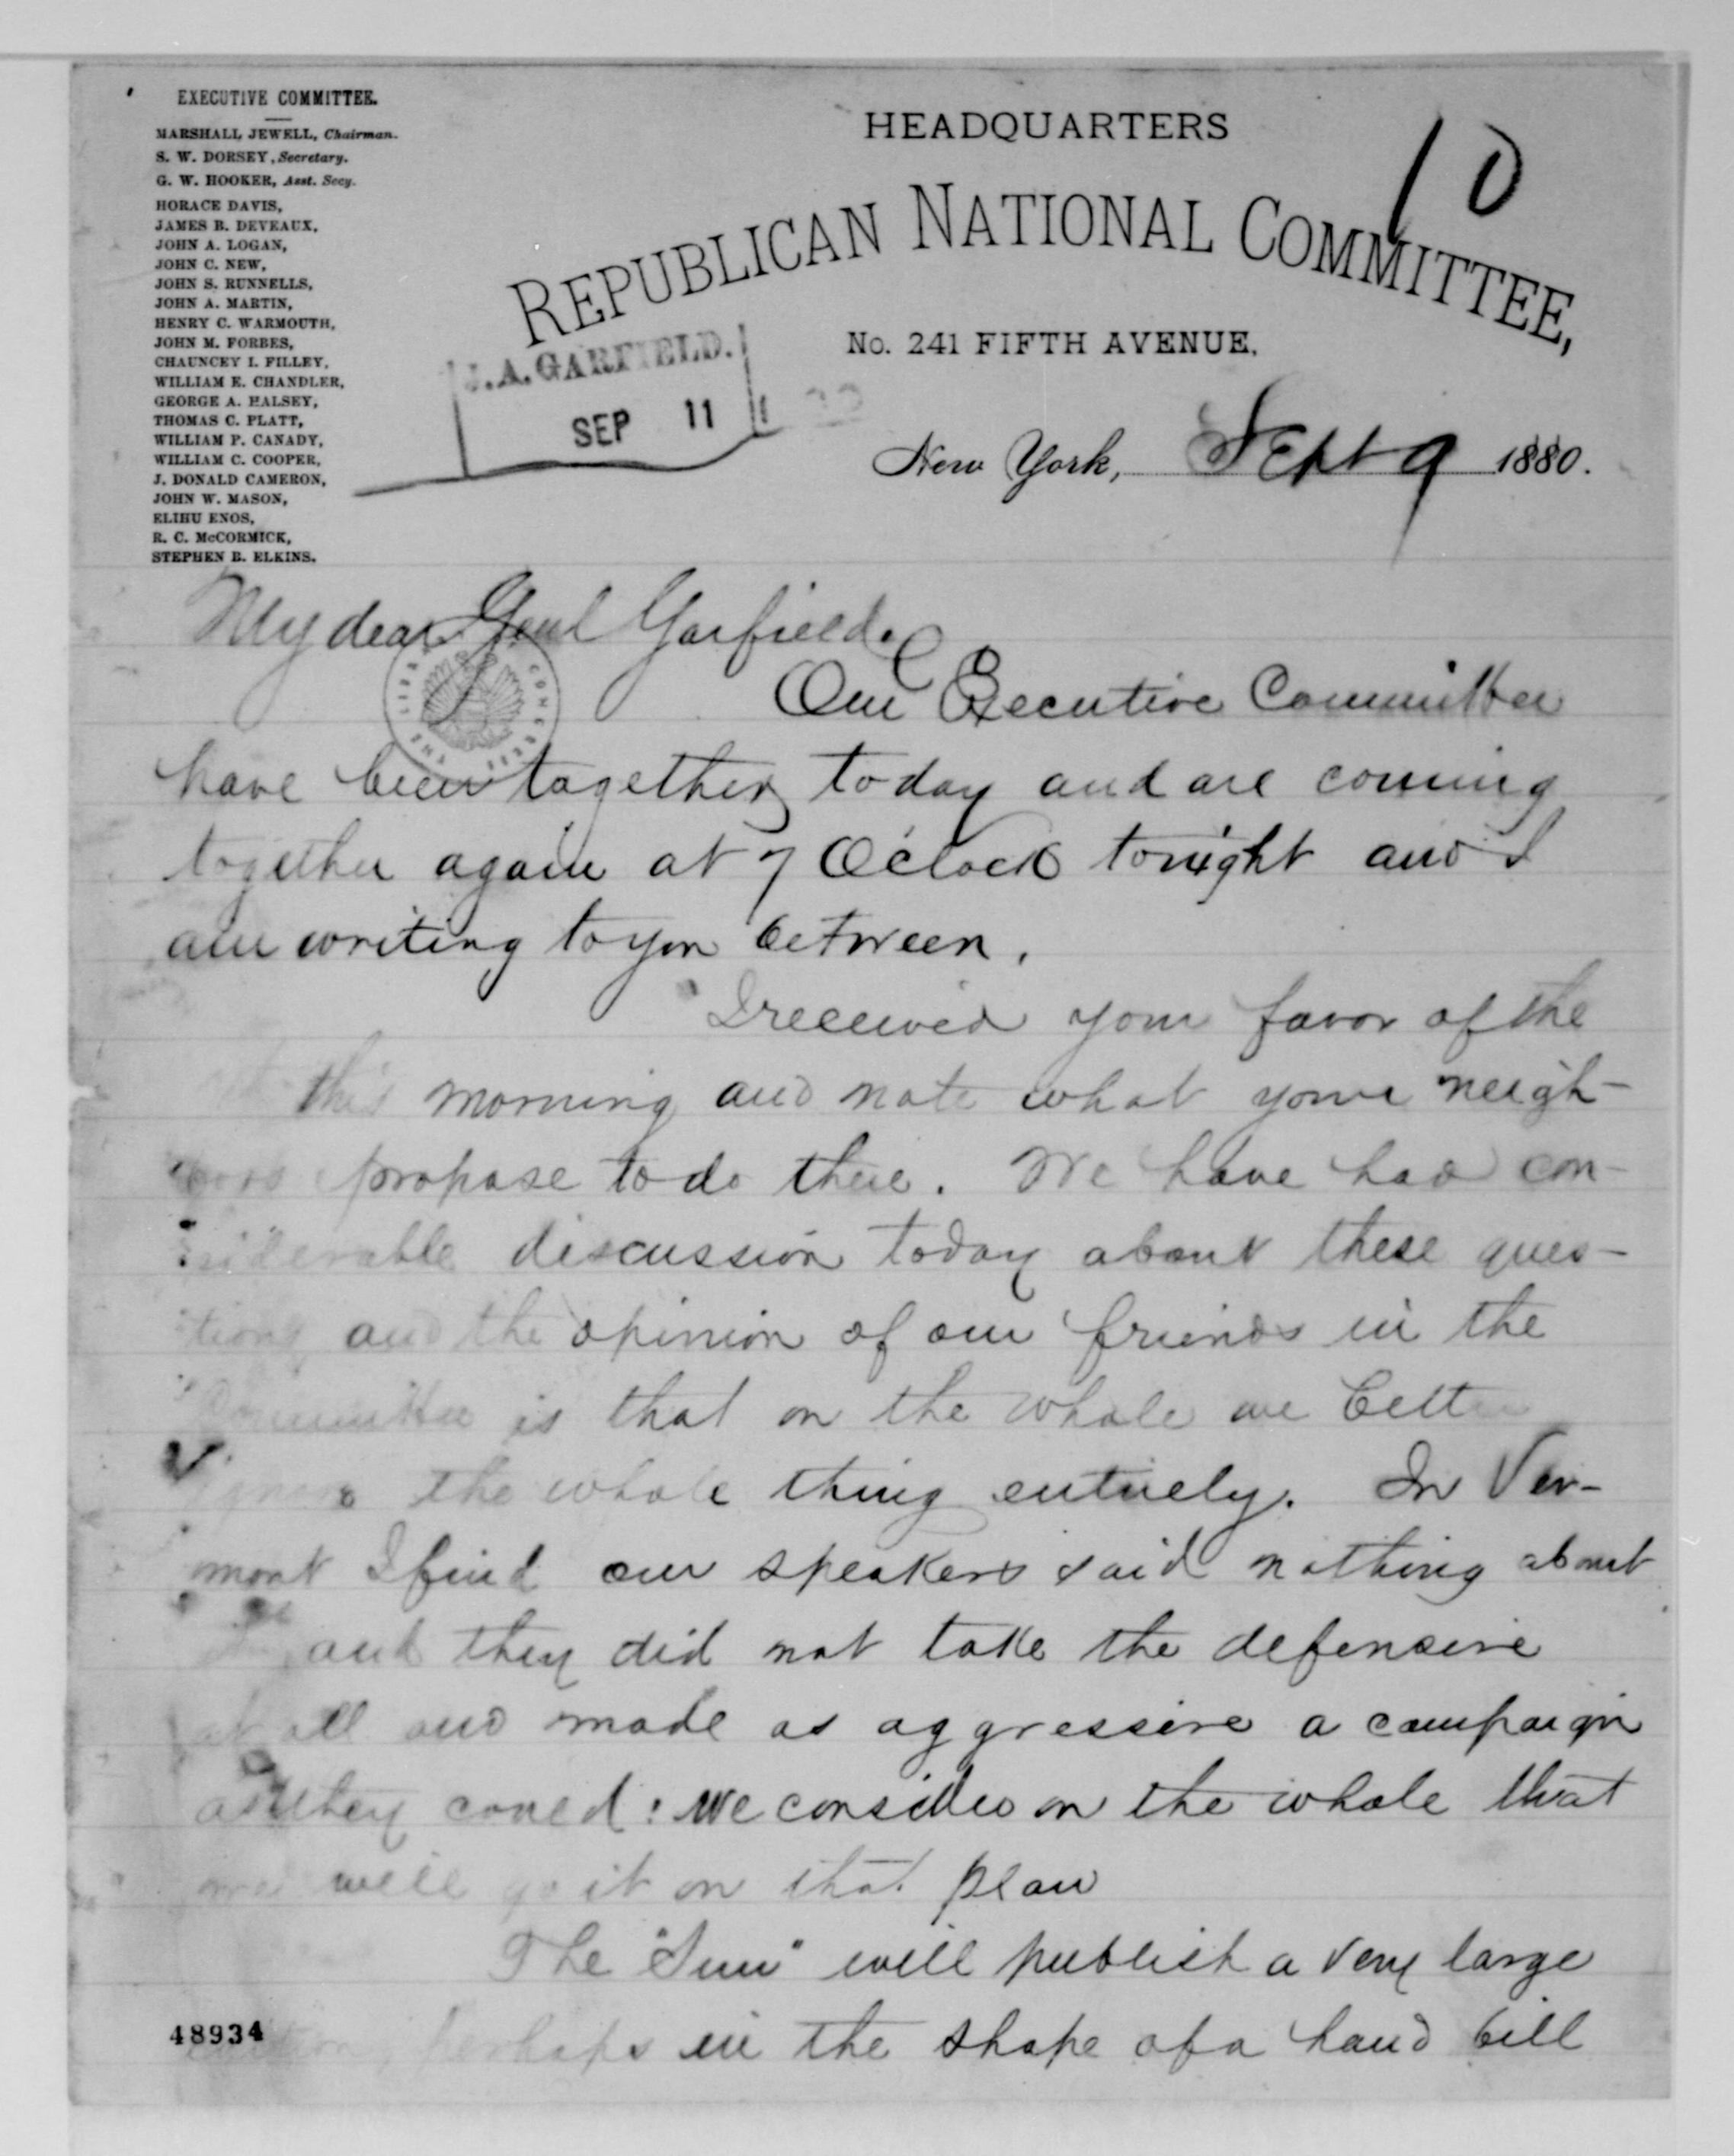 EXECUTIVE COMMITTEE.
MARSHALL JEWELL, Chairman.
S. W. DORSEY, Secretary.
G. W. HOOKER, Asst. Secy.
HORACE DAVIS,
JAMES B. DEVEAUX,
JOHN A. LOGAN,
JOHN C. NEW,
JOHN S. RUNNELLS,
JOHN A. MARTIN,
HENRY C. WARMOUTH,
JOHN M. FORBES,
CHAUNCEY I. FILLEY,
WILLIAM E. CHANDLER,
GEORGE A. HALSEY,
THOMAS C. PLATT,
WILLIAM P. CANADY,
WILLIAM C. COOPER,
J. DONALD CAMERON,
JOHN W. MASON,
ELIHU ENOS,
R. C. McCORMICK,
STEPHEN B. ELKINS.
HEADQUARTERS
10
REPUBLICAN NATIONAL COMMITTEE,
No. 241 FIFTH AVENUE.
J.A. GARFIELD.
SEP 11
New York, Sept 9 1880.
My dear Genl Garfield.
Our Executive Committee
have been together today and are coming
together again at 7 O'clock tonight and I
am writing to you between.
I received your favor of the
this morning and note what your neigh-
bors propose to do there. We have had con-
siderable discussion today about these ques-
tions and the opinion of our friends in the
Committee is that on the whole we better
ignore the whole thing entirely. In Ver-
mont I find our speakers said nothing about
it and they did not take the defensive
at all and made as aggressive a campaign
as they could: We consider on the whole that
we will go it on that plan
The "Sun" will publish a very large
edition, perhaps in the shape of a hand bill
48934